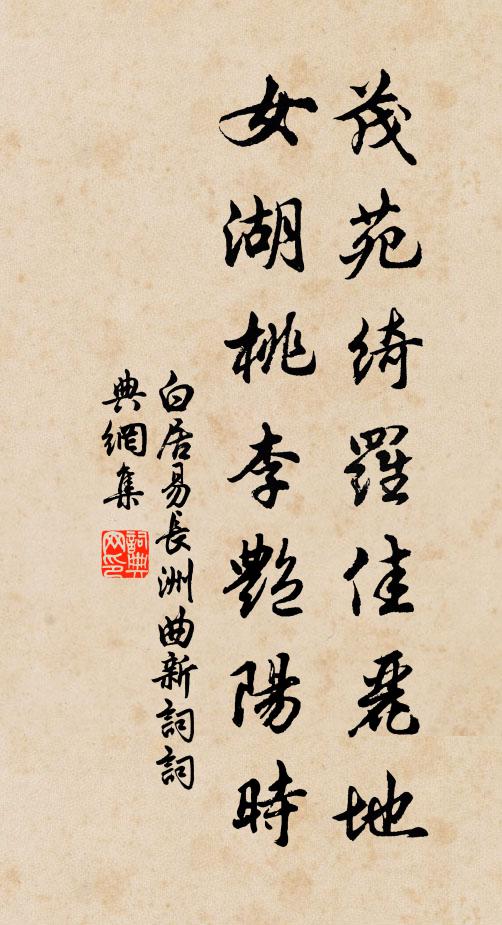 茂苑綺羅佳麗地
女湖桃李艷陽時
白居易長洲曲新詞詞
典網集
詞典
网印